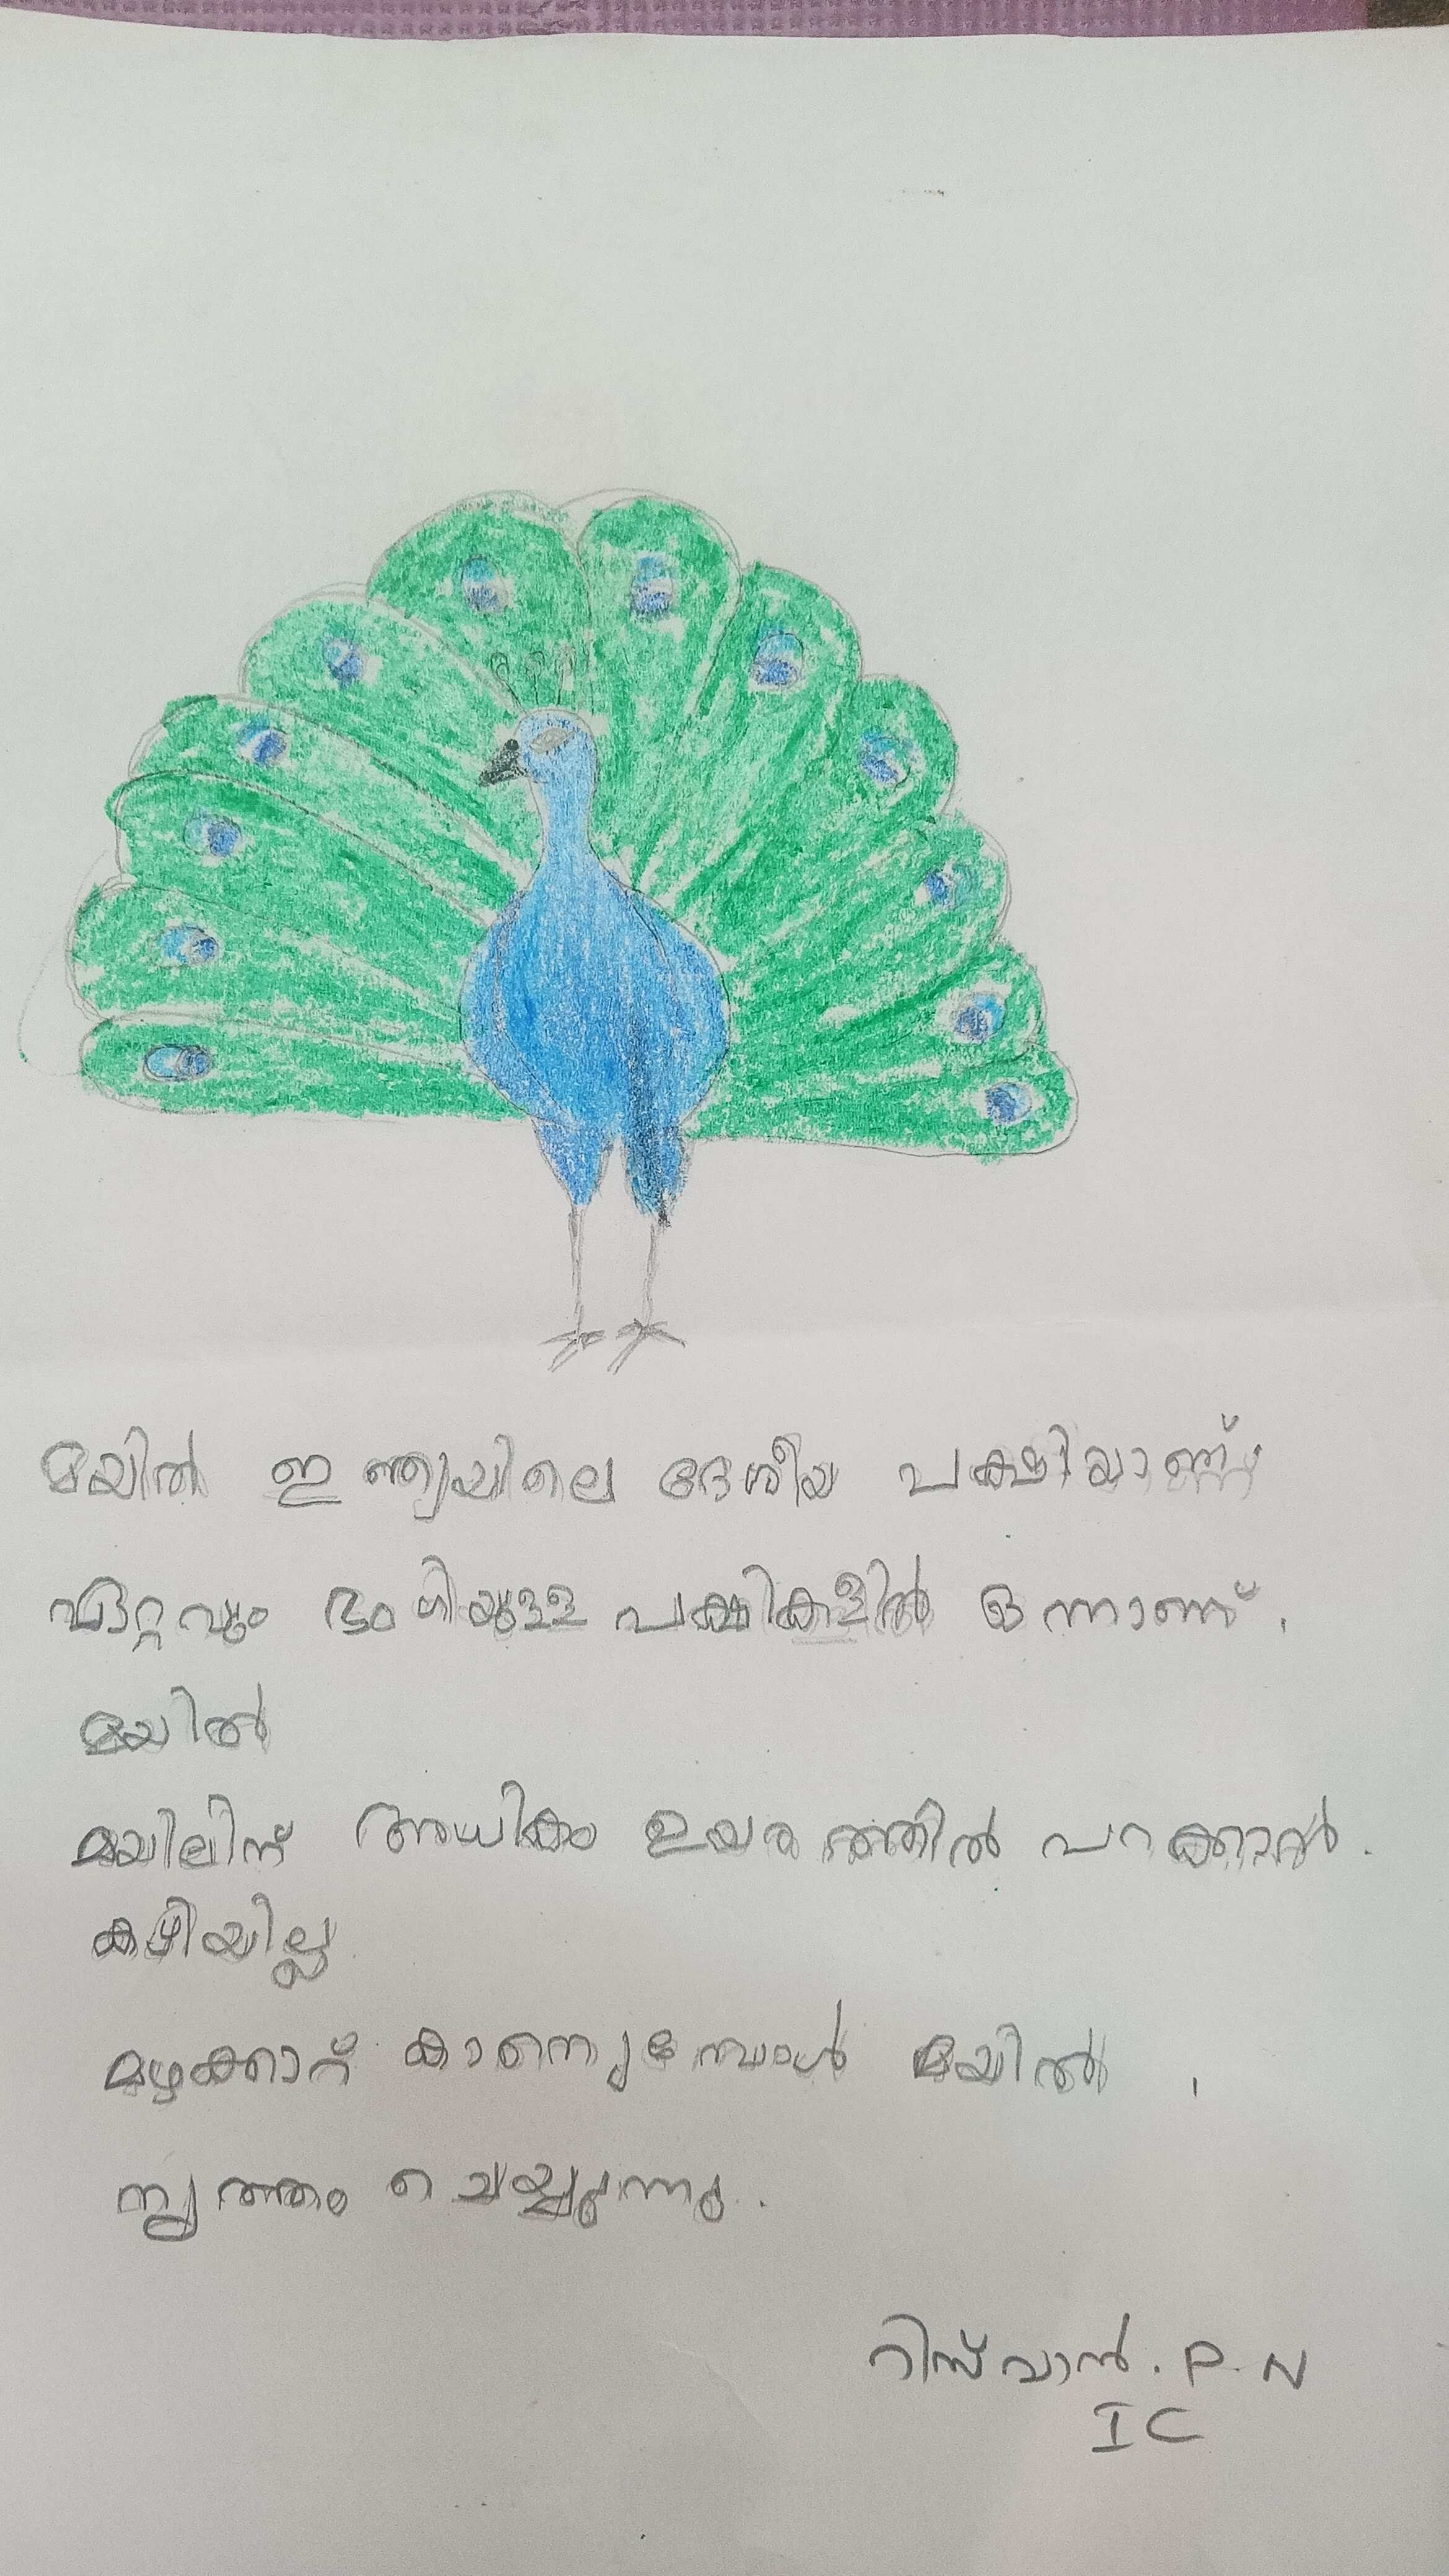 മയിൽ ഇന്ത്യയിലെ ദേശീയ പക്ഷിയാണ്
ഏറ്റവും ഭംഗിയുള്ള പക്ഷികളിൽ ഒന്നാണ്.
മയിൽ
മയിലിന് അധികം ഉയരത്തിൽ പറക്കാൻ.
കഴിയില്ല
മഴക്കാറ് കാണുമ്പോൾ മയിൽ .
നൃത്തം ചെയ്യുന്നു.
റിസ്വാൻ. P. N
I C